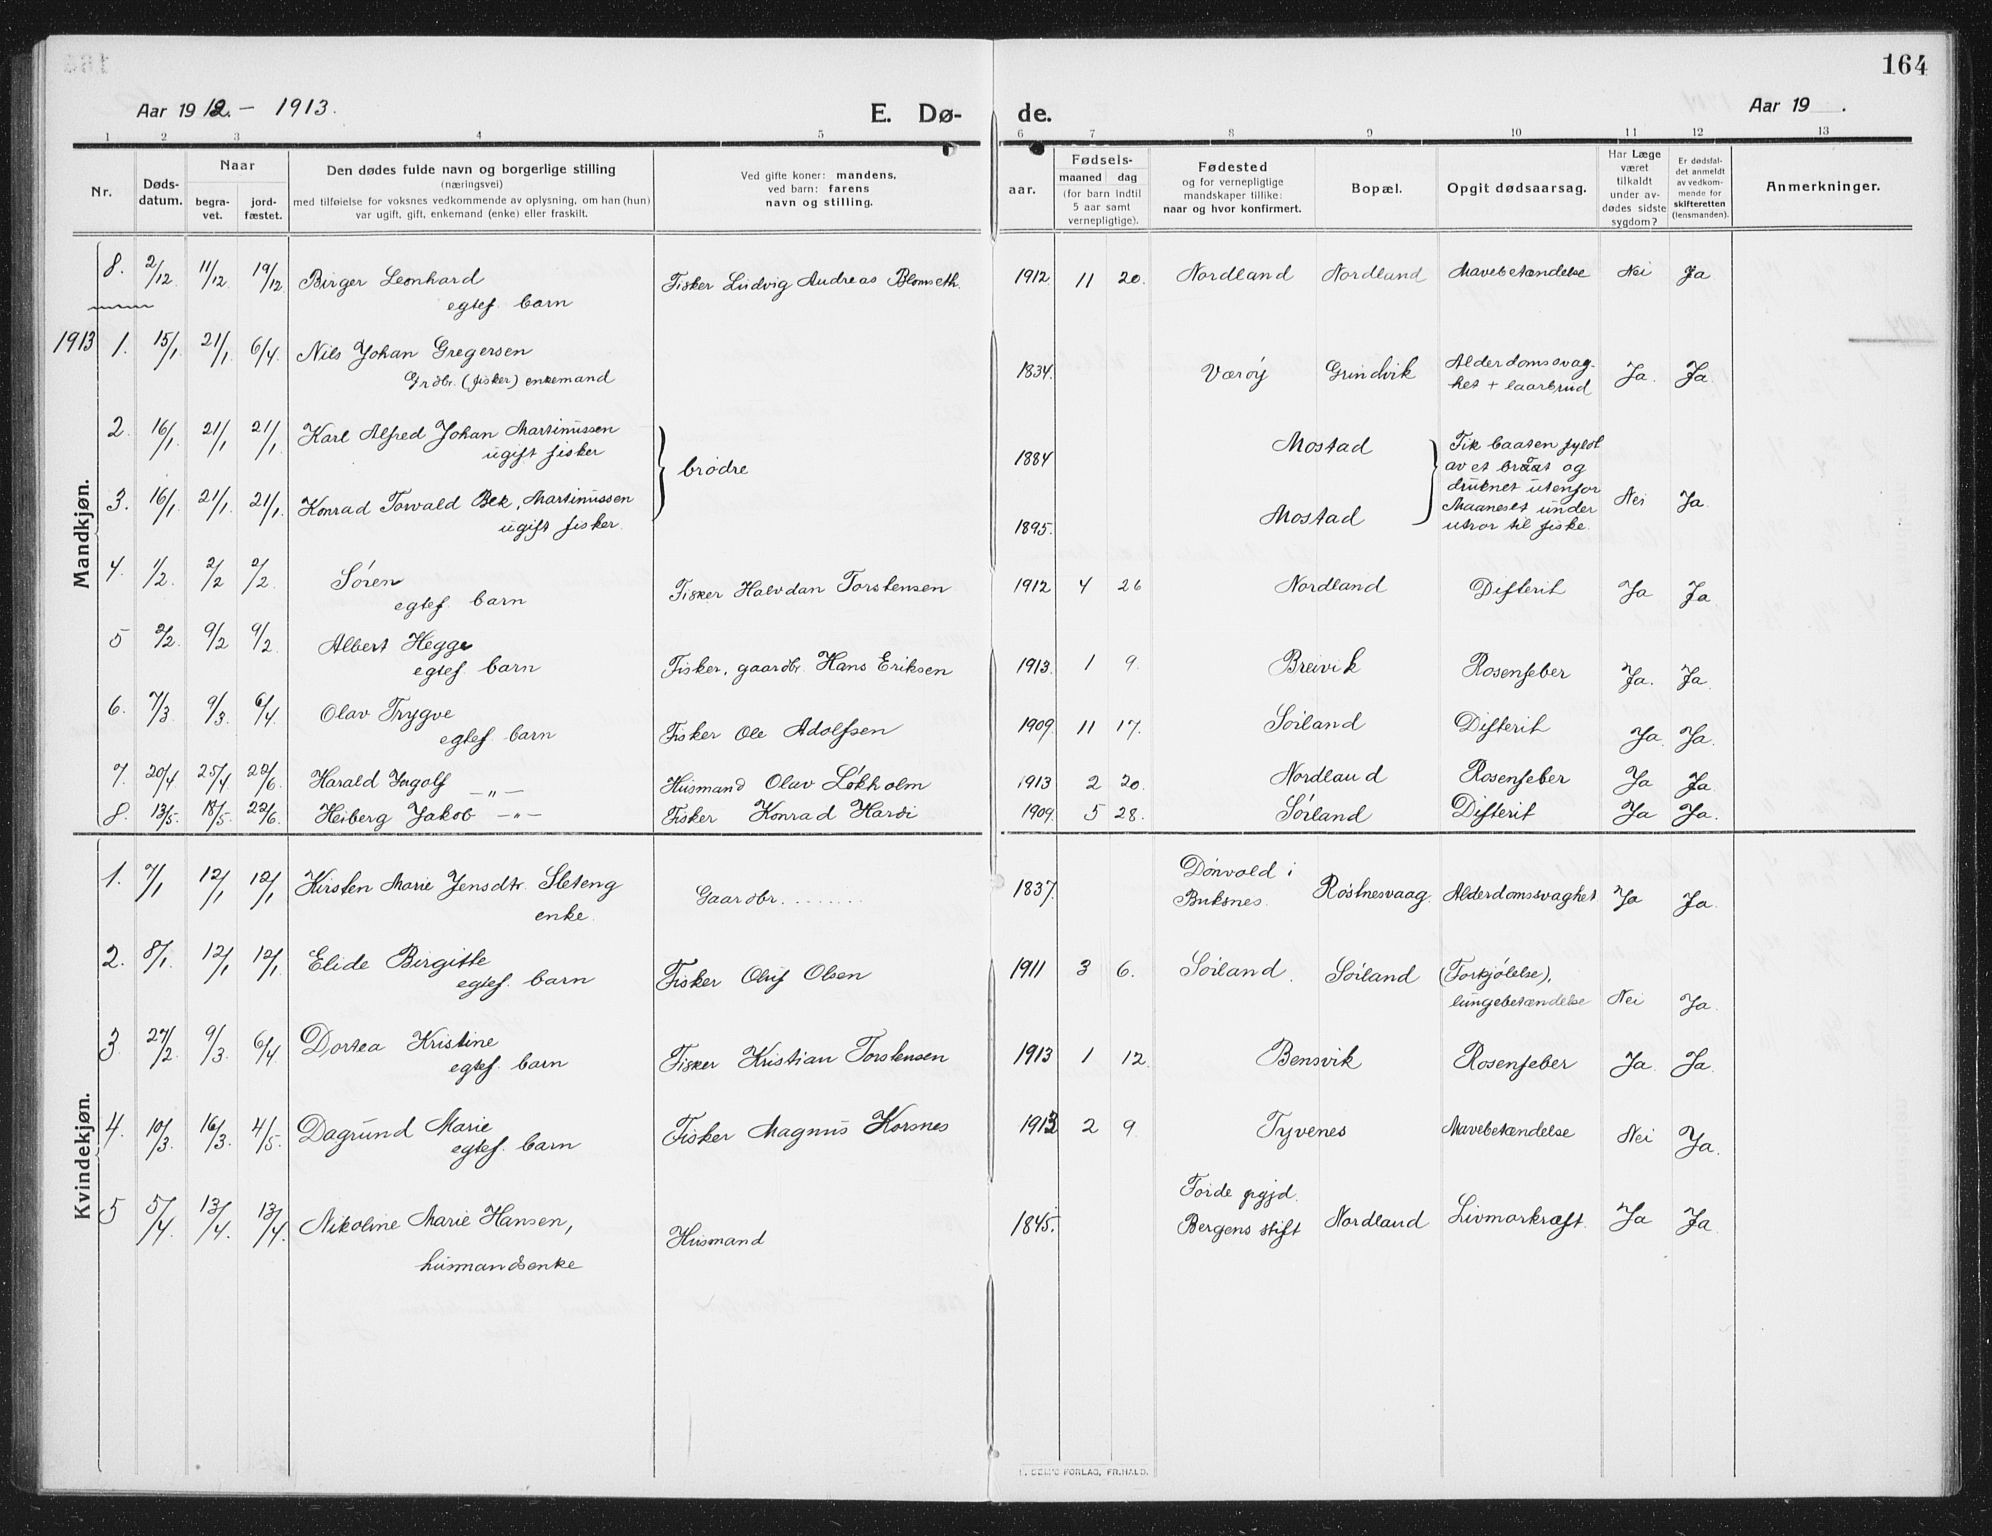 164
Aar 1912. - 1913.
E. Dø-
de.
Aar 19 .
1 2 3 4 5 6 7 8 9 10 11 12 13
Nr.
Døds-
datum.
Naar
begra-
vet.
jord-
fæstet.
Den dødes fulde navn og borgerlige stilling
(næringsvei)
med tilføielse for voksnes vedkommende av oplysning, om han (hun)
var ugift, gift, enkemand (enke) eller fraskilt.
Ved gifte koner: mandens,
ved barn: farens
navn og stilling.
Fødsels-
aar.
maaned dag
(for barn indtil
5 aar samt
vernepligtige).
Fødested
og for vernepligtige
mandskaper tillike:
naar og hvor konfirmert.
Bopæl.
Opgit dødsaarsag.
Har Læge
været
tilkaldt
under av-
dødes sidste
sygdom?
Er dødsfal-
det anmeldt
av vedkom-
mende for
skifteretten
(lensmanden).
Anmerkninger.
Mandkjøn.
8. 2/12 11/12 19/12 Birger Leonhard Fisker Ludvig Andreas Blomseth. 1912 11 20. Nordland Nordland Mavebetændelse Nei Ja
egtef. barn
1913 1. 15/1 21/1 6/4 Nils Johan Gregersen
Grdbr. (fisker) enkemand
1834. Værøy Grindvik Alderdomssvag-
het + laarbrud Ja. Ja
2. 16/1 21/1 21/1 Karl Alfred Johan Martinussen
ugift fisker
brødre
1884 Mostad Fik baaten fyldt
av et braat og
druknet utenfor
Maaneset under
utror til fiske.
Nei Ja.
3. 16/1 21/1 21/1 Konrad Torvald Bek. Martinussen
ugift fisker.
1895. Mostad
4. 1/2. 2/2 2/2 Søren
egtef. barn Fisker Halvdan Torstensen 1912 4 26 Nordland Difterit Ja Ja
5 2/2. 9/2 9/2. Albert Hegge
egtef. barn Fisker, gaardbr. Hans Eriksen 1913. 1 9. Breivik Rosenfeber Ja. Ja
6. 7/3 9/3. 6/4 Olav Trygve
egtef. barn Fisker Ole Adolfsen 1909. 11 17. Søiland Difterit Ja. Ja.
7. 20/4 25/4 22/6 Harald Ingolf -"- Husmand Olav Løkholm 1913 2 20. Nordland Rosenfeber Ja Ja.
8. 13/5 18/5 22/6. Heiberg Jakob -"- Fisker Konrad Hardi 1909. 5 28. Sørland Difterit Ja Ja.
Kvindekjøn.
1. 7/1 12/1 12/1 Kirsten Marie Jensdtr. Sleteng
enke.
Gaardbr. ........ 1837. Dønvold i
Buksnes. Røstnesvaag. Alderdomssvaghet. Ja Ja.
2. 8/1. 12/1 12/1 Elide Birgitte
egtef. barn Fisker Oluf Olsen 1911 3 6. Søiland. Søiland (Forkjølelse),
lungebetændelse Nei Ja.
3 27/2 9/3 6/4 Dortea Kristine
egtef. barn Fisker Kristian Torstensen 1913 1 12. Bensvik Rosenfeber Ja. Ja.
4. 10/3 16/3. 4/5. Dagrund Marie
egtef. barn Fisker Magnus Korsnes 1913 2 9. Tyvenes Mavebetændelse Nei Ja.
5 5/4 13/4. 13/4. Nikoline Marie Hansen,
husmandsenke
Husmand 1845. Førde pgjd.
Bergens stift Nordland Livmorkræft. Ja Ja.
FORLAG, FR.HALD.